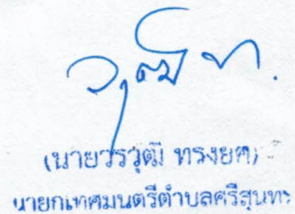 วุฒิ ท.
(นายวรวุฒิ ทรงยศ)
นายกเทศมนตรีตำบลศรีสุนทร